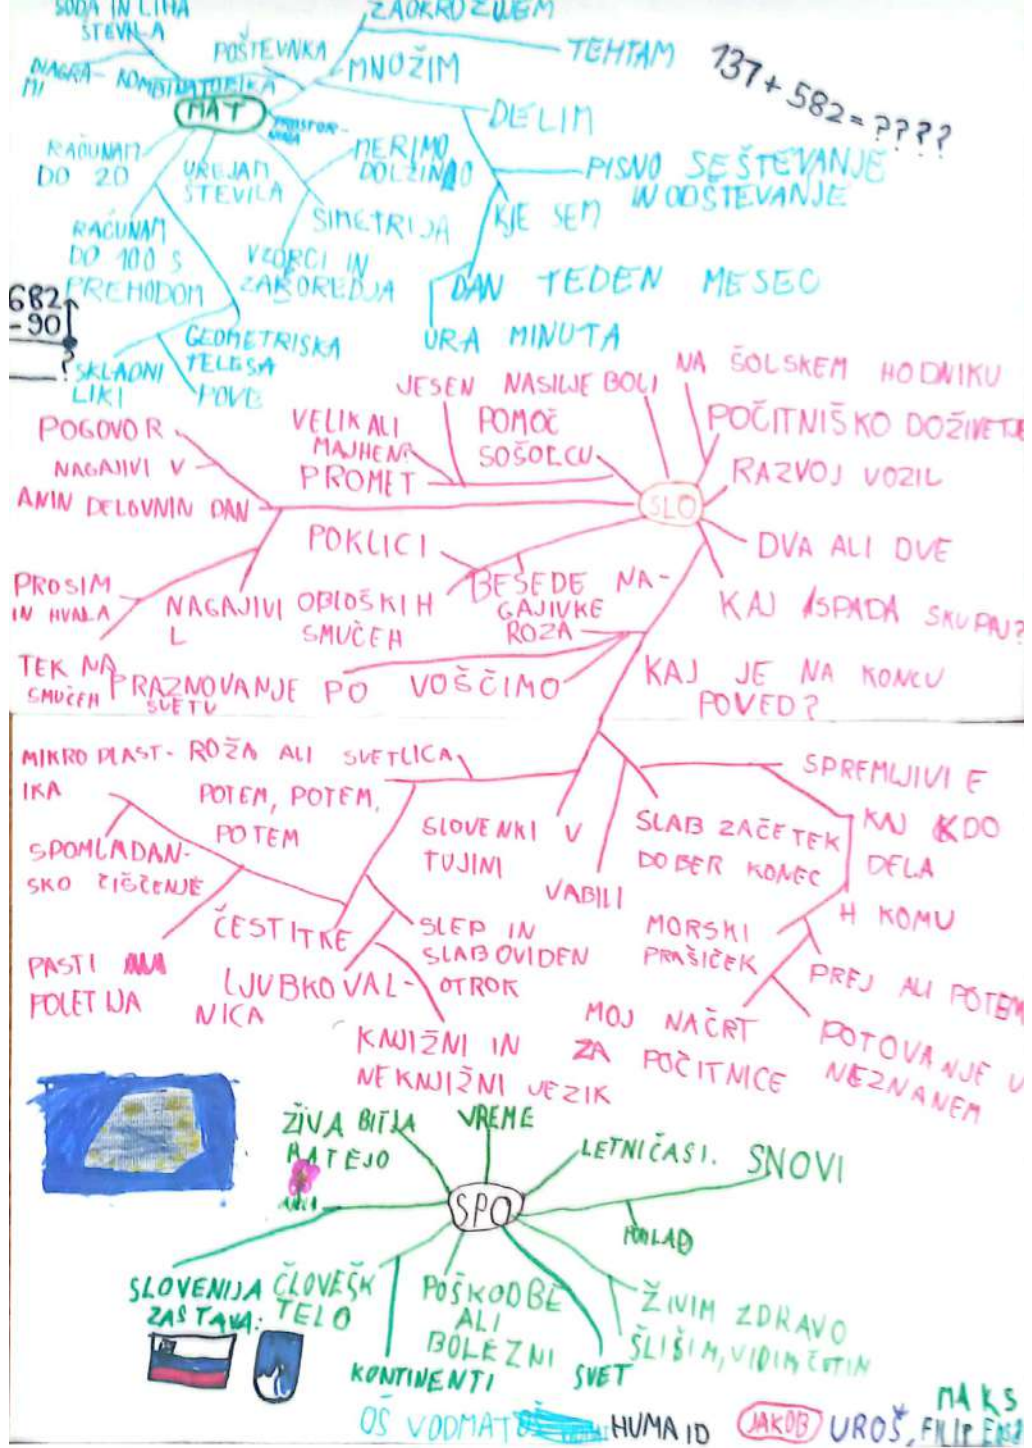 SODA IN LIHA
ŠTEVILA
ZAOKROŽUJEM
POŠTEVNKA
TEHTAM
MNOŽIM
137 + 582 = ????
KOMBINATORIKA
MAT
DELIM
RAČUNAM
DO 20
UREJAM
ŠTEVILA
MERIMO
DOLŽINO
PISNO SEŠTEVANJE
IN ODŠTEVANJE
KJE SEM
SIMETRIJA
RAČUNAM
DO 100 S
PREHODOM
VZORCI IN
ZAPOREDJA
DAN TEDEN MESEC
URA MINUTA
682
- 90
?
GEOMETRISKA
TELESA
SKLADNI
LIKI
JESEN
NASILJE BOLI
NA ŠOLSKEM HODNIKU
POGOVOR
VELIK ALI
MAJHEN
POMOČ
SOŠOLCU
POČITNIŠKO DOŽIVETJE
NAGAJIVI V
PROMET
RAZVOJ VOZIL
SLO
ANIN DELOVNIN DAN
POKLICI
DVA ALI DVE
PROSIM
IN HVALA
NAGAJIVI
L
OBLOŠKIH
SMUČEH
BESEDE NA-
GAJIVKE
ROZA
KAJ SPADA SKUPAJ?
TEK NA
SMUČEH
PRAZNOVANJE PO
SVETU
VOŠČIMO
KAJ JE NA KONCU
POVED?
MIKRO PLAST-
IKA
ROŽA ALI SVETLICA
SPREMLJIVI E
POTEM, POTEM,
POTEM
SLOVENKI V
TUJINI
SLAB ZAČETEK
DOBER KONEC
KAJ KDO
DELA
SPOMLADAN-
SKO ČIŠČENJE
VABILI
H KOMU
ČESTITKE
SLEP IN
SLABOVIDEN
OTROK
MORSKI
PRAŠIČEK
PREJ ALI POTEM
PASTI
POLETIJA
LJUBKOVAL-
NICA
MOJ NAČRT
ZA POČITNICE
POTOVANJE V
NEZNANEM
KNJIŽNI IN
NEKNJIŽNI JEZIK
ŽIVA BITJA
RATEJO
VREME
LETNIČASI.
SNOVI
SPO
SLOVENIJA
ZASTAVA:
ČLOVEŠK
TELO
POŠKODBE
ALI
BOLEZNI
ŽIVIM ZDRAVO
SLIŠIM, VIDIM ČUTIM
KONTINENTI
SVET
OŠ VODMAT
HUMAID
JAKOB
UROŠ, FILIP
MAKS